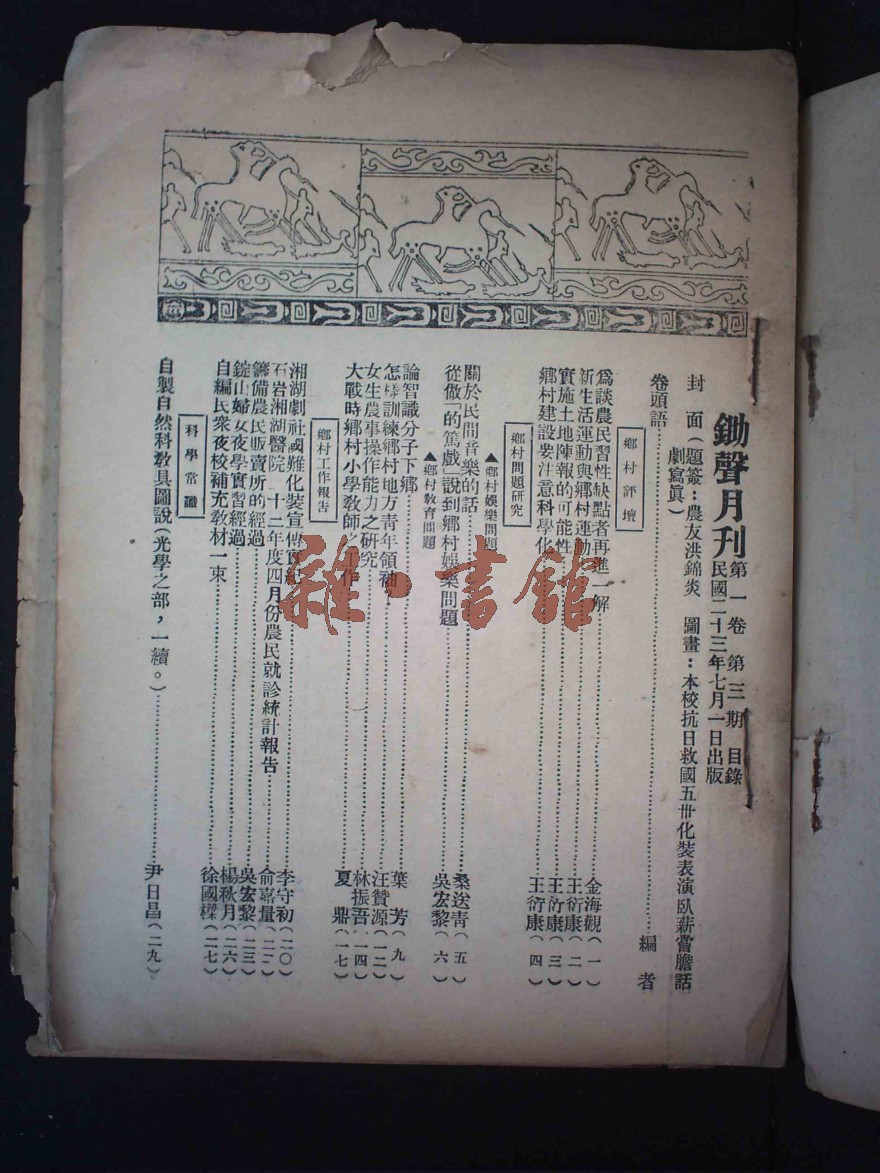 鋤聲月刊 第一卷 第三期 目錄
民國二十三年七月一日出版
封 面(題簽:農友洪錦炎 圖畫:本校抗日救國五卅化裝表演臥薪嘗膽話
劇寫眞)
卷頭語………………編 者
鄉村評壇
爲談農民習性缺點者再進一解………………金海觀(一)
新生活運動與鄉村運動………………王衍康(二)
實施土地陳報的可能性………………王衍康(三)
鄉村建設要注意科學化………………王衍康(四)
鄉村問題研究
▲鄉村娛樂問題
關於民間音樂的話………………桑送靑(五)
從做「的篤戲」說到鄉村娛樂問題………………吳宏黎(六)
▲鄉村敎育問題
論智識分子下鄉………………葉 芳(九)
怎樣訓練鄉村地方靑年領袖………………汪贊源(一二)
女生農事操作能力之研究………………林振吾(一四)
大戰時鄉村小學敎師之工作………………夏 鼎(一七)
鄉村工作報告
湘湖劇社國難化裝宣傳………………李守初(二〇)
石岩湘湖醫院二十二年度四月份農民就診統計報告………………俞嘉量(二二)
籌備農民販賣所的經過………………吳宏黎(二三)
錠山婦女夜學實習經過………………楊秋月(二六)
自編民衆夜校補充敎材一束………………徐國樑(二七)
科學常識
自製自然科敎具圖說(光學之部,一續。)………………尹日昌(二九)
雜·書館